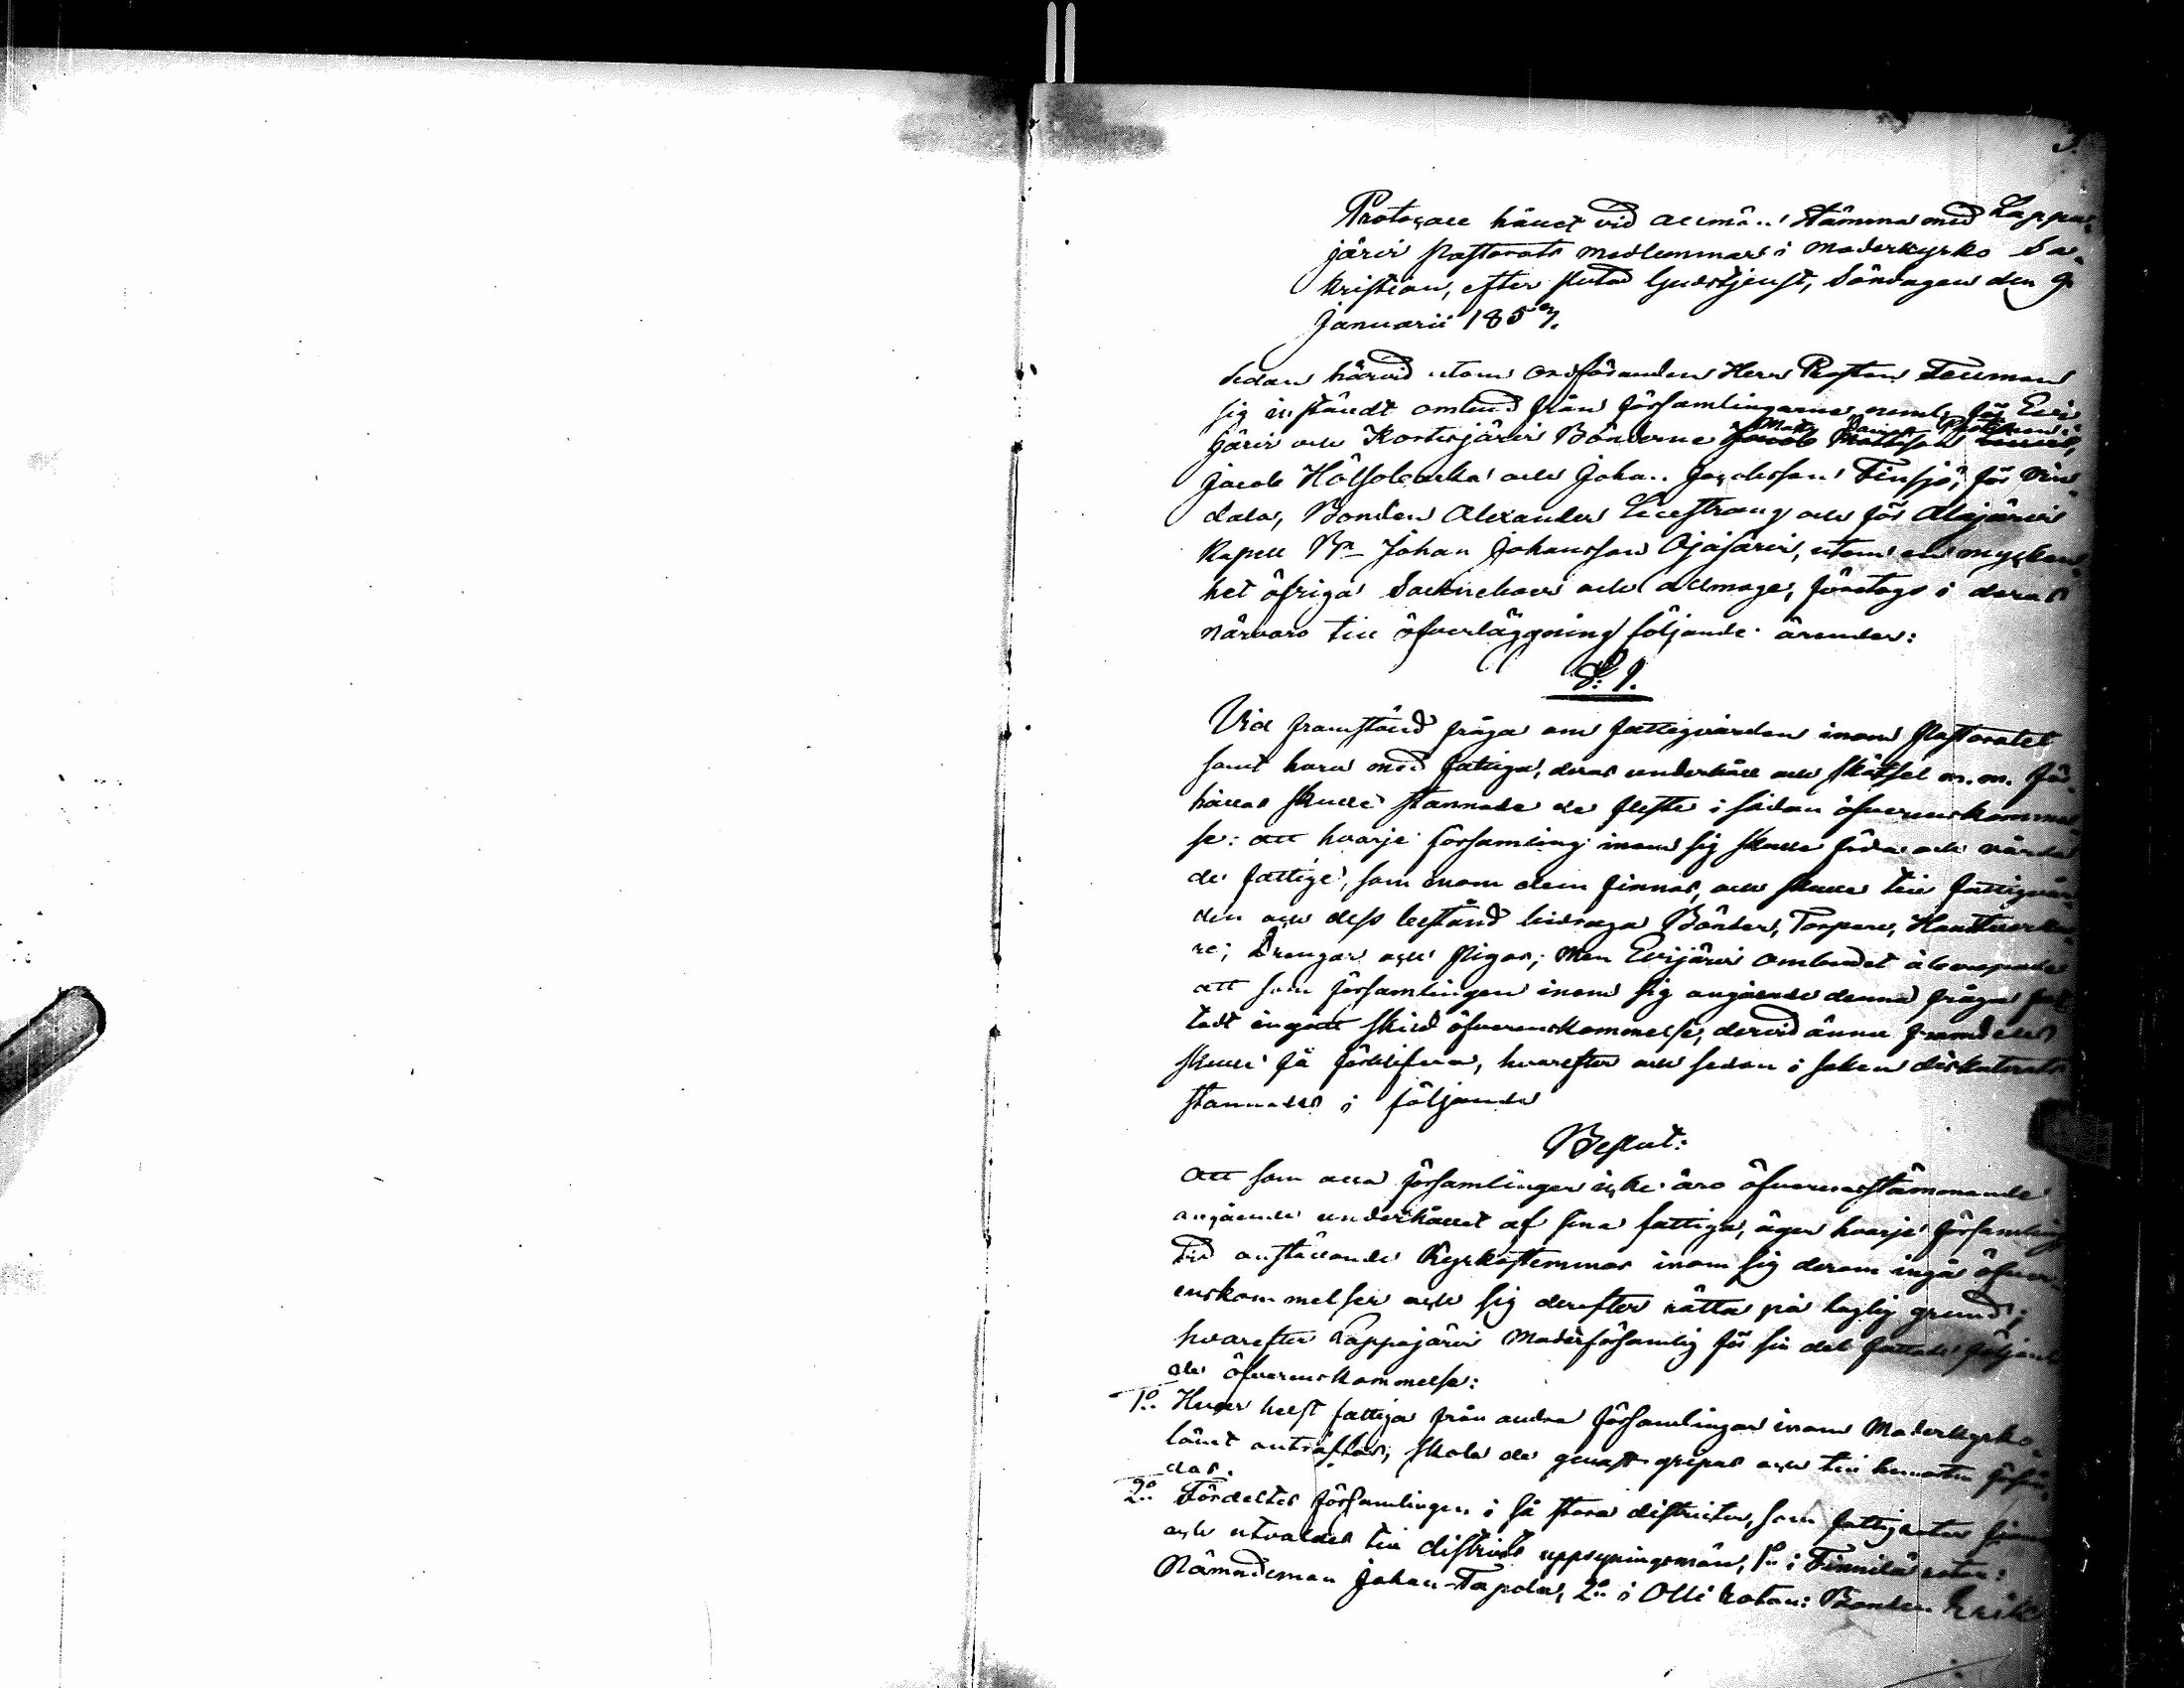 3.
Protocoll hållet vid allmän Stämma med Lappa-
järvi Pastorats medlemmar i Moderkyrko Sa-
kristian, efter slutad Gudstjenst, Söndagen den 9
Januarii 1857.
Sedan härvid utom ordföranden Herr Prosten Teuman
sig inställdt ombud från församlingarne, neml. för Evi-
järvi och Kortesjärvi Bönderne
Jacob Hölsobacka och Johan Jacobsson Finsjö, för Vin-
dala, Bonden Alexander och för Alajärvi
Kapell Bn Johan Johansson Ojajärvi, utom en mycken-
het öfriga Sockneboer och allmoge, företogs i deras
närvaro till öfverläggning följande ärender:
§: 1.
Vid framstäld fråga om fattigvården inom Pastoratet
samt huru med fattiga, deras underhåll och skötsel m.m. för-
hållas skulle stannade de fleste i sådan öfverenskommel-
se: att hvarje församling inom sig skulle föda och vårda
de fattige, som inom dem finnas, och skulle till fattigvår-
den och dess bestånd bidraga Bönder, Torpare, Handtverka-
re, Drengar och Pigor; men Evijärvi ombudet åberopade
att som församlingen inom sig angående denna fråga
tadt ingått skild öfverenskommelse, dervid ännu framdeles
skulle få förblifva, hvarefter och sedan i saken diskuterats
stannades i följande
Beslut:
Att som alla församlingar icke äro öfverensstämmande
angående underhållet af sina fattiga, äger hvarje församling
vid anställande Kyrkostemmor inom sig derom ingå öfver-
enskommelser och sig derefter rätta på laglig grund;
hvarefter Lappajärvi Moderförsamlig för sin del fattade följan-
de öfverenskommelse:
1o Hvar helst fattiga från andra församlingar inom Moderkyrko-
länet anträffas, skola de genast gripas och till hemorten försän-
das.
2o Fördeltes församlingen i så stora districter, som fattigrotar finnas
och utvaldes till districts uppsyningsmän, 1o i Finnilä rotan:
Nämndeman Johan Tapola, 2o i Olli rotan: Bonden Erik